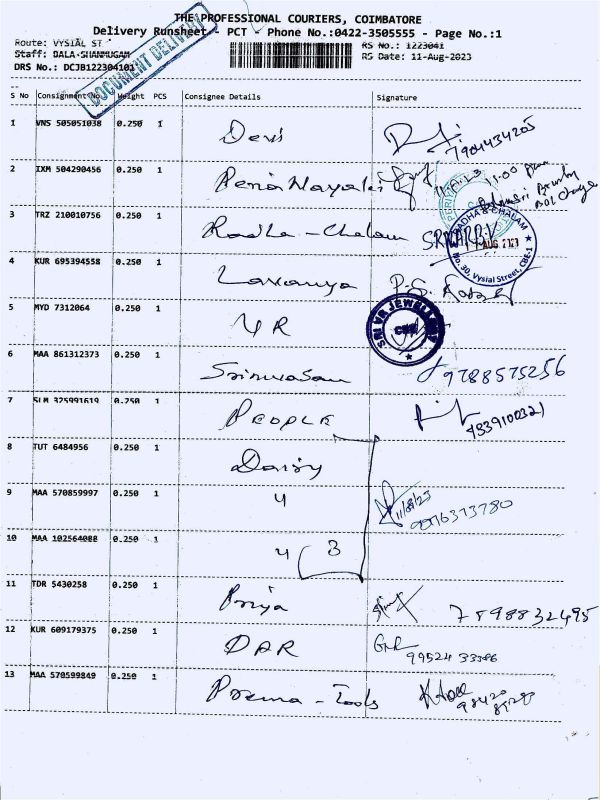 THE PROFESSIONAL COURIERS, COIMBATORE
Delivery Runsheet - PCT - Phone No.:0422-3505555 - Page No.:1
Route: VYSIAL ST
RS No.: 1223041
Staff: BALA SHANMUGAM
RS Date: 11-Aug-2023
DRS No.: DCJB122304101
DOCUMENT DELIVERY
S No Consignment No. Weight PCS Consignee Details Signature
1 VNS 505051038 0.250 1 Devi 7904434205
2 IXM 504290456 0.250 1 Peria Nayaki
3 TRZ 210010756 0.250 1 Radha - Chalam
RADHA & CHALAM
AUG 2023
No. 30, Vysial Street, CBE-1
4 KUR 695394558 0.250 1 Lavanya
5 MYD 7312064 0.250 1 VR
SRI VR JEWELLERY
CBE
6 MAA 861312373 0.250 1 Srinivasan 9788575256
7 SLM 325991619 0.250 1 PEOPLE 4339100321
8 TUT 6484956 0.250 1 Daisy
9 MAA 570859997 0.250 1 4 11/8/23
10 MAA 102564088 0.250 1 4 3
11 TDR 5430258 0.250 1 Priya 7898832495
12 KUR 609179375 0.250 1 DAR 99524 33386
13 MAA 570599849 0.250 1 Poerna - Tools